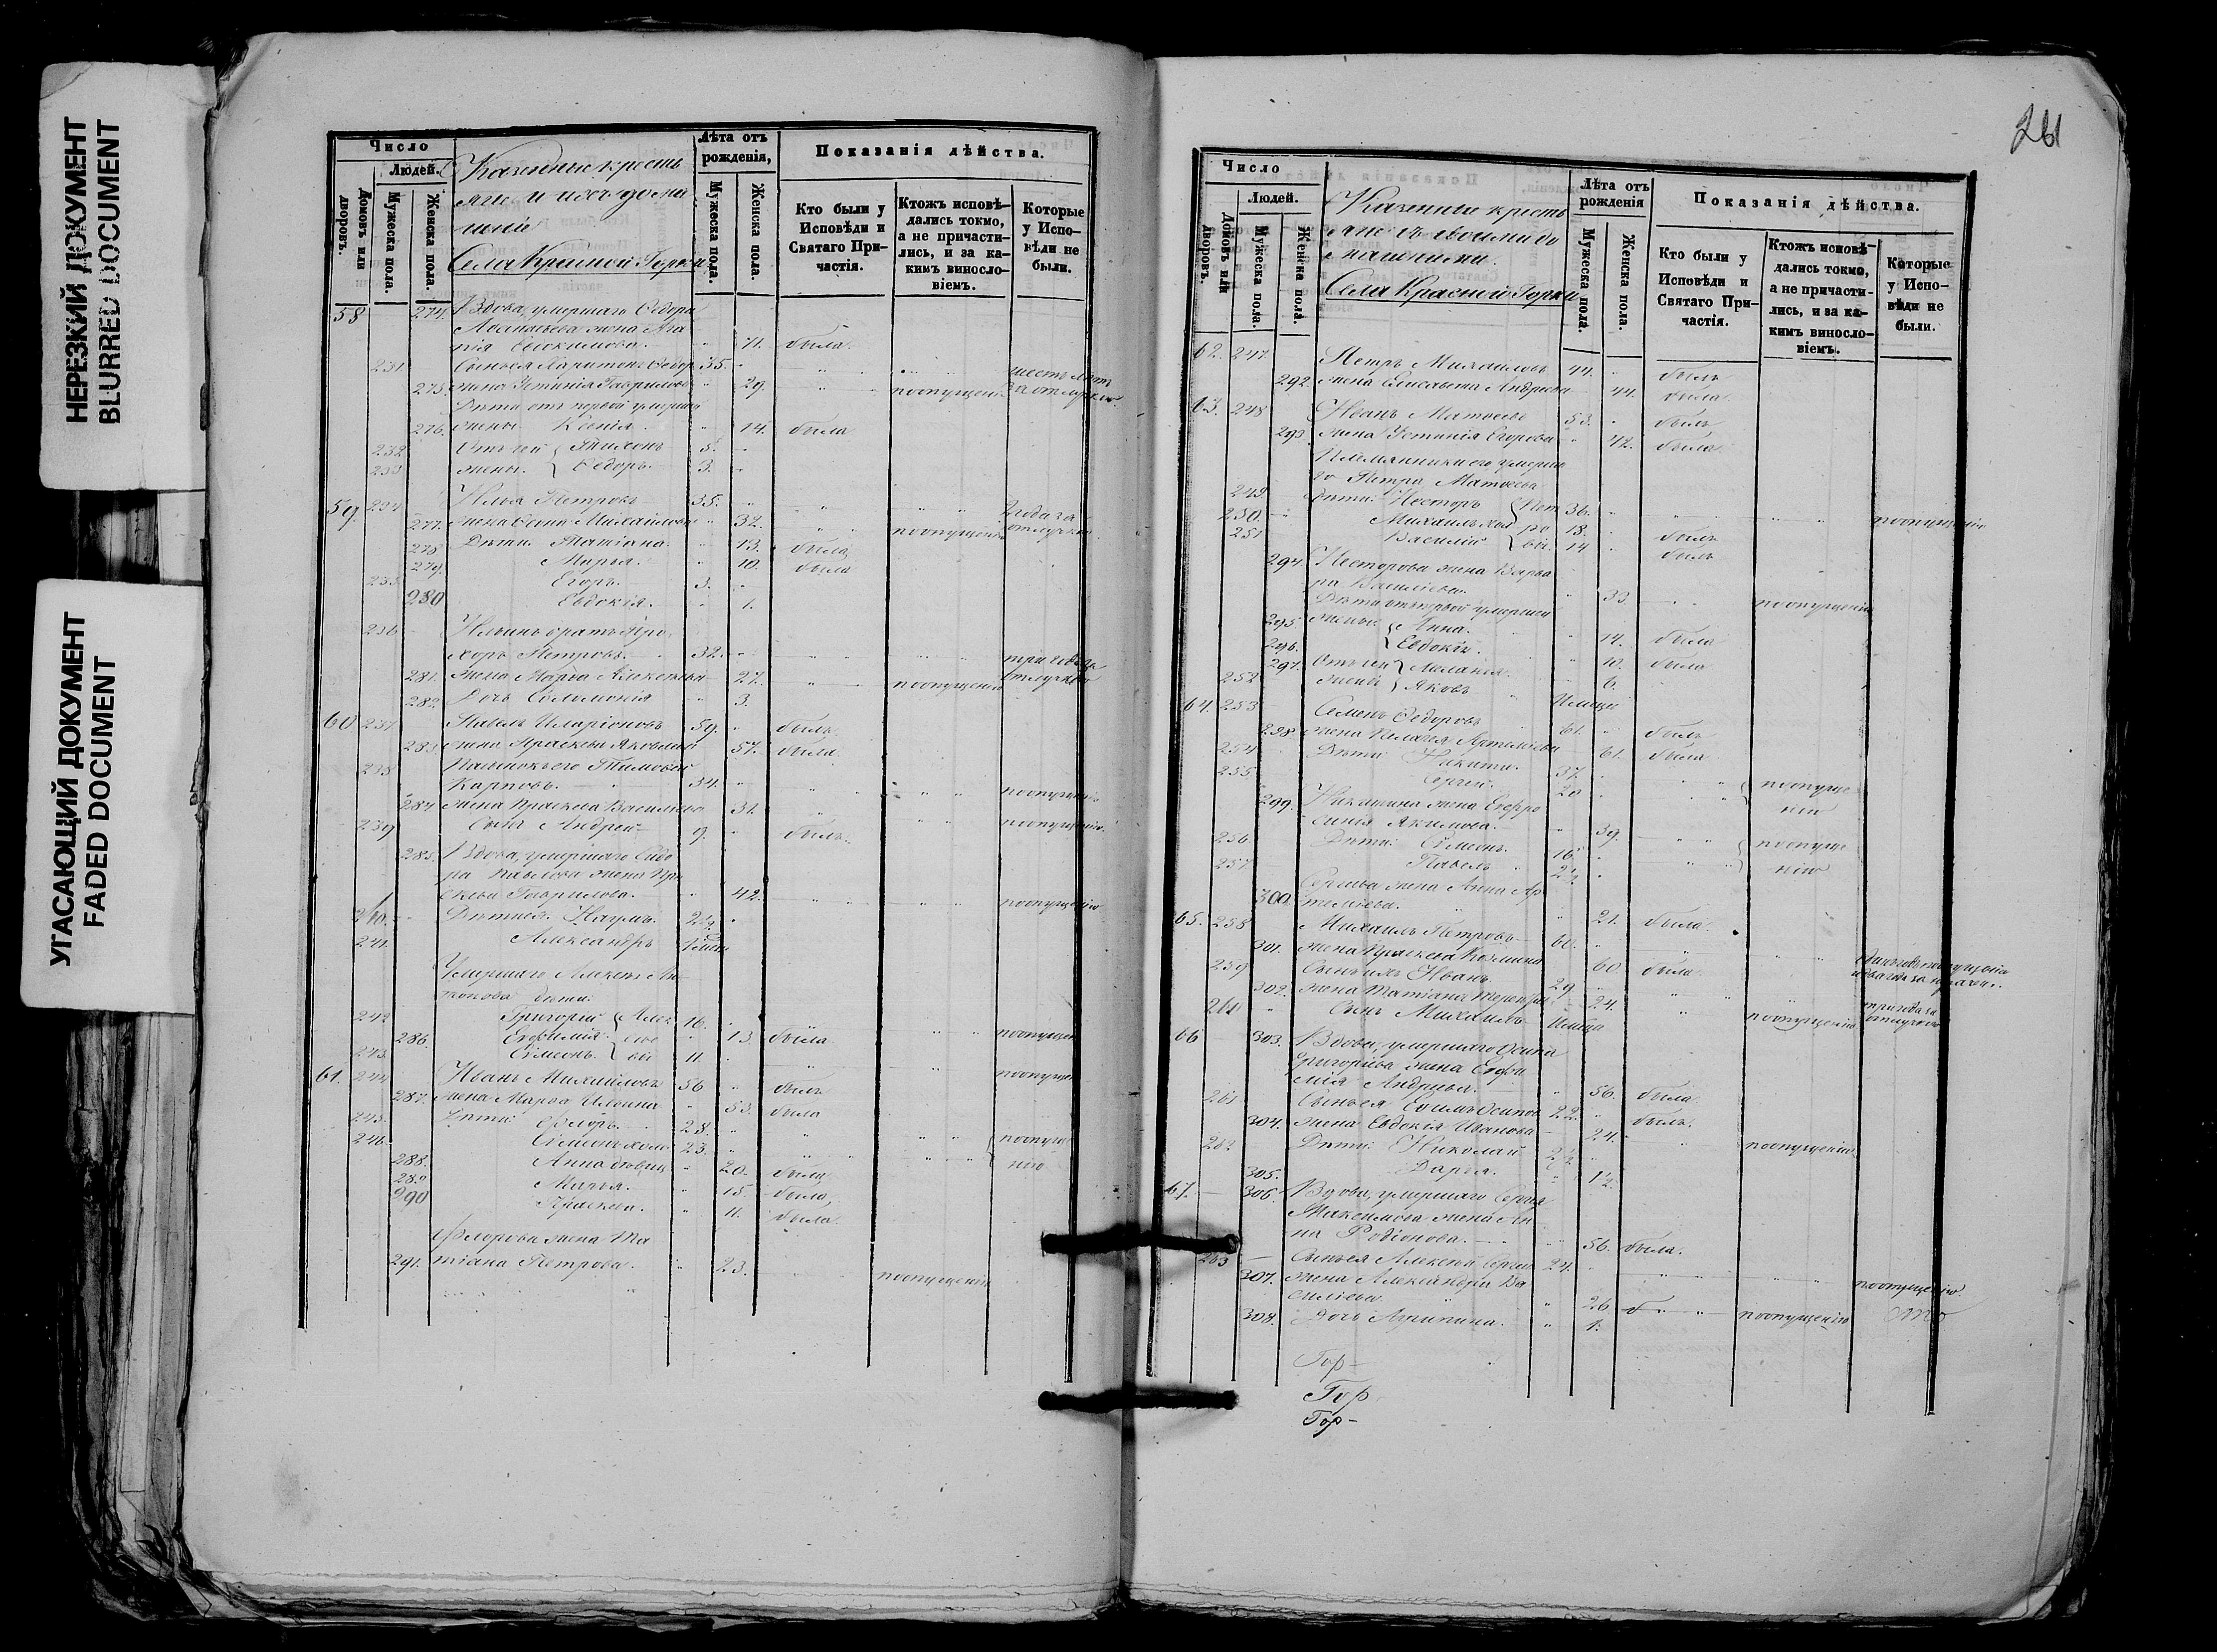 НЕРЕЗКИЙ ДОКУМЕНТ
BLURRED DOCUMENT
УГАСАЮЩИЙ ДОКУМЕНТ
FADED DOCUMENT
Число
Людей.
Домовъ или дворовъ.
Мужеска пола.
Женска пола.
Казенные кресть
яне и ихъ дома
шніе
Села Красной Горки
Лѣта отъ рожденія,
Мужеска пола.
Женска пола.
Показанія дѣйства.
Кто были у Исповѣди и Святаго При-частія.
Ктожъ исповѣ-дались токмо, а не причасти-лись, и за ка-кимъ винсло-віемъ.
Которые у Испо-вѣди не были.
58 274. Вдова, умершаго Ѳедора
жена Ага
пія Евокимова. 71. была.
231 Сынъ ея Харитонъ Ѳедор 35. шесть лѣтъ
275. жена Устинія Гаврилова 29. поопущенію за отлучкою
Дѣти отъ первой умершей
276. жены Ксенія. 14. была
232 Отъ сей Тихонъ 5.
233 жены. Ѳедоръ. 3.
59. 234 Илья Петровъ 35. 2 года за
277. жена Михайлова 32. поопущенію отлучкою
278 Дѣти: Татіана. 13. была
279. Марья. 10. была
235. Егоръ. 3.
280 Евдокія. 1.
236 Ильинъ братъ Про
хоръ Петровъ. 32. три года за
281. жена Марѳа Алексѣева 27. поопущенію отлучкою
282. Дочь Соломонія 3.
60 237 Павелъ Иларіоновъ 59. былъ
283 жена Праскева Яковлева 57. была.
238 Тимоѳей
Карповъ. 34. поопущенію
284. жена Праскева Васильева 31. поопущенію.
239 Сынъ Андрей 9. былъ.
285. Вдова, умершаго Сидо
ра Павлова жена Пра
скева Гаврилова. 42. поопущенію
240. Дѣти ея: Наумъ. 2½.
241. Александръ
Умершаго Алексѣя
дѣти:
242 Григорій 16. поопущен
286. Евфимія. 13. была
243. Симеонъ. 11 поопущен
61. 244 Иванъ Михайловъ 56 былъ
287. жена Марѳа Ильина 53. была
245. Дѣти: Флоръ. 28.
246. Симеонъ холос 23. поопуще
288. Анна дѣвица 20. была нію
289 Марья. 15. была
290 Праскева. 11. была.
Флорова жена Та
291. тіана Петрова. 23. поопущенію
261
Число
Людей.
Домовъ или дворовъ.
Мужеска пола.
Женска пола.
Казенные кресть
яне съ своими до
машними.
Села Красной Горки
Лѣта отъ рожденія
Мужеска пола.
Женска пола.
Показанія дѣйства.
Кто были у Исповѣди и Святаго При-частія.
Ктожъ исповѣ-дались токмо, а не причасти-лись, и за ка-кимъ винсло-віемъ.
Которые у Испо-вѣди не были.
62. 247. Петръ Михайловъ 44. былъ
292. жена Елисавета Андреева 44. была.
63. 248 Иванъ Матвеевъ 53. былъ
293. жена Устинія Егорова 42. была.
Племянники его умерша
го Петра Матвеева
249 дѣти: Несторъ 36. поопущенію
250. Михаилъ хол 18. былъ
251 Василій 14 былъ
294. Несторова жена Варва
ра Васильева. 33. поопущенію
Дѣти отъ первой умершей
295 жены: Анна. 14. была
296. Евдокія. 10. была
297. Отъ сей Меланія. 6.
252 жены Яковъ
64. 253 Семенъ Ѳедоровъ 61. былъ
298 жена Пелагея Артемьева 61. была
254 Дѣти: Никита. 37. поопуще
255 Сергій. 20 нію
299. Никитина жена Евфро
синія Якимова. 39. поопуще
256 Дѣти: Симеонъ. 16. нію
257 Павелъ 2½
Сергіева жена Анна Ар
300 темьева. 21. была.
65. 258 Михаилъ Петровъ 60.
301. жена Праскева Козмина 60. была
259 Сынъ ихъ Иванъ 29
302. жена Татіана 24. поопущенію три года за отлучкою
260 Сынъ Михаилъ
66 303. Вдова, умершаго Осипа
Григорьева жена Евфи
мія Андреева. 56. была
261 Сынъ ея Ефимъ Осипов 22. былъ.
304. жена Евдокія Иванова 24. поопущенію
262 Дѣти: Николай 2½
305. Дарья. 1½.
67. 306. Вдова, умершаго Сергія
Максимова жена Ан
на Родіонова. 56. была.
263 Сынъ ея Алексѣй Сергеев 24. поопущенію
307. жена Александра Ва
сильева. 26 поопущенію
308. Дочь Агрипина. 1.
Гор-
Гор
Гор-